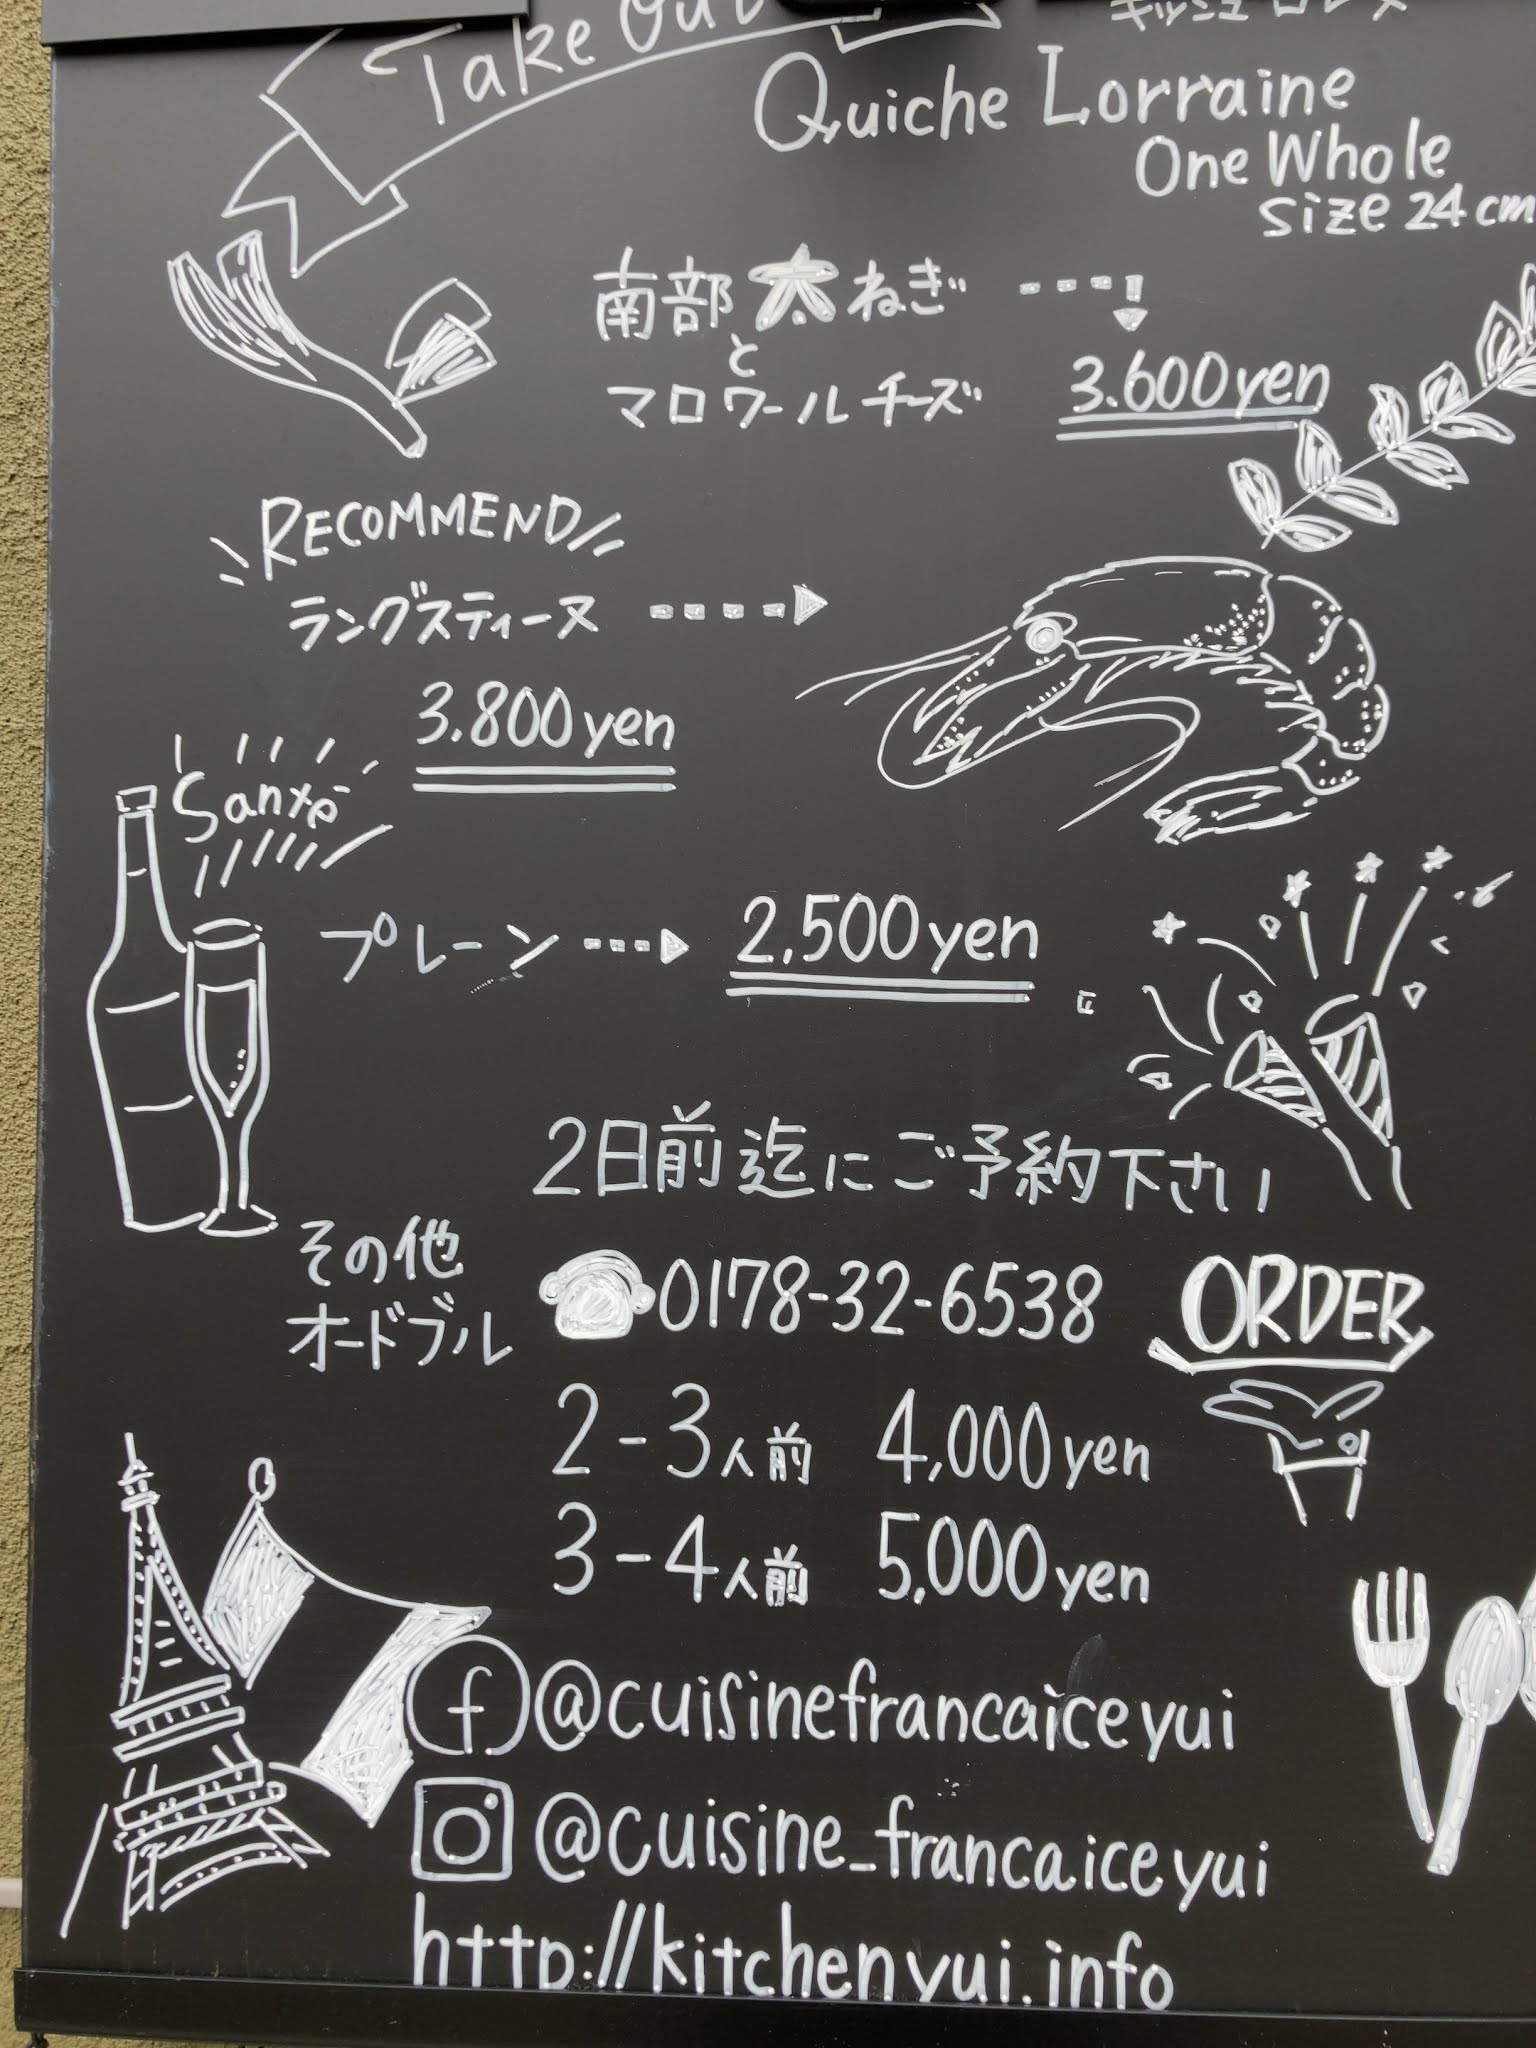 Take Out
キッシュロレーヌ
Quiche Lorraine
One Whole
size 24cm
南部太ねぎ
と
マロワールチーズ
3.600yen
RECOMMEND
ラングスティーヌ
3.800yen
Santé
プレーン
2,500yen
2日前迄にご予約下さい
その他
オードブル
0178-32-6538
ORDER
2-3人前 4,000yen
3-4人前 5,000yen
f @cuisinefrancaiceyui
@cuisine_francaiceyui
http://kitchenyui.info